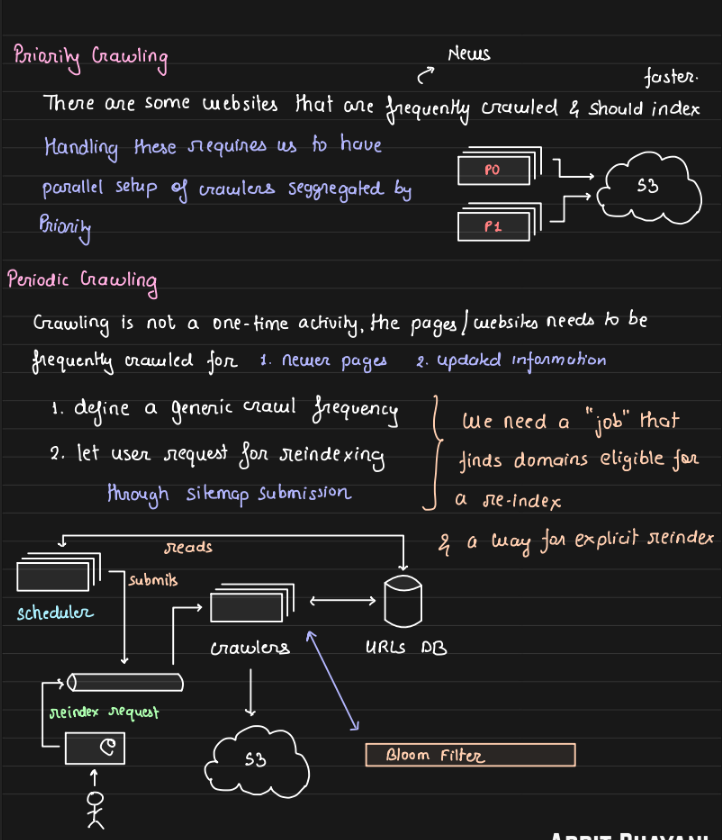 Priority Crawling
News
faster.
There are some websites that are frequently crawled & should index
Handling these requires us to have
parallel setup of crawlers seggregated by
Priority
P0
P1
S3
Periodic Crawling
Crawling is not a one-time activity, the pages/websites needs to be
frequently crawled for 1. newer pages 2. updated information
1. define a generic crawl frequency
2. let user request for reindexing
through sitemap submission
We need a "job" that
finds domains eligible for
a re-index
& a way for explicit reindex
reads
submits
scheduler
crawlers
URLs DB
reindex request
S3
Bloom Filter